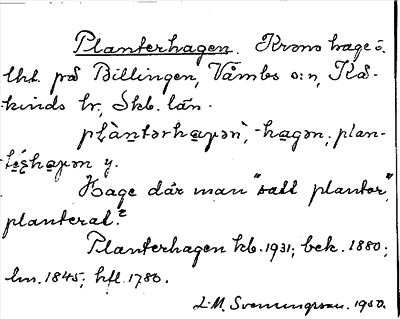 Planterhagen. Krono hage ö.
lht. på Billingen, Våmbs s:n, Kå-
kinds hr, Skb. län.
plàntərhaɡən, -hagən; plan-
y.
Hage där man "satt plantor",
planterat.
Planterhagen kb. 1931; bek. 1880;
lm. 1845; hfl. 1780.
L.M. Svenungsson. 1950.